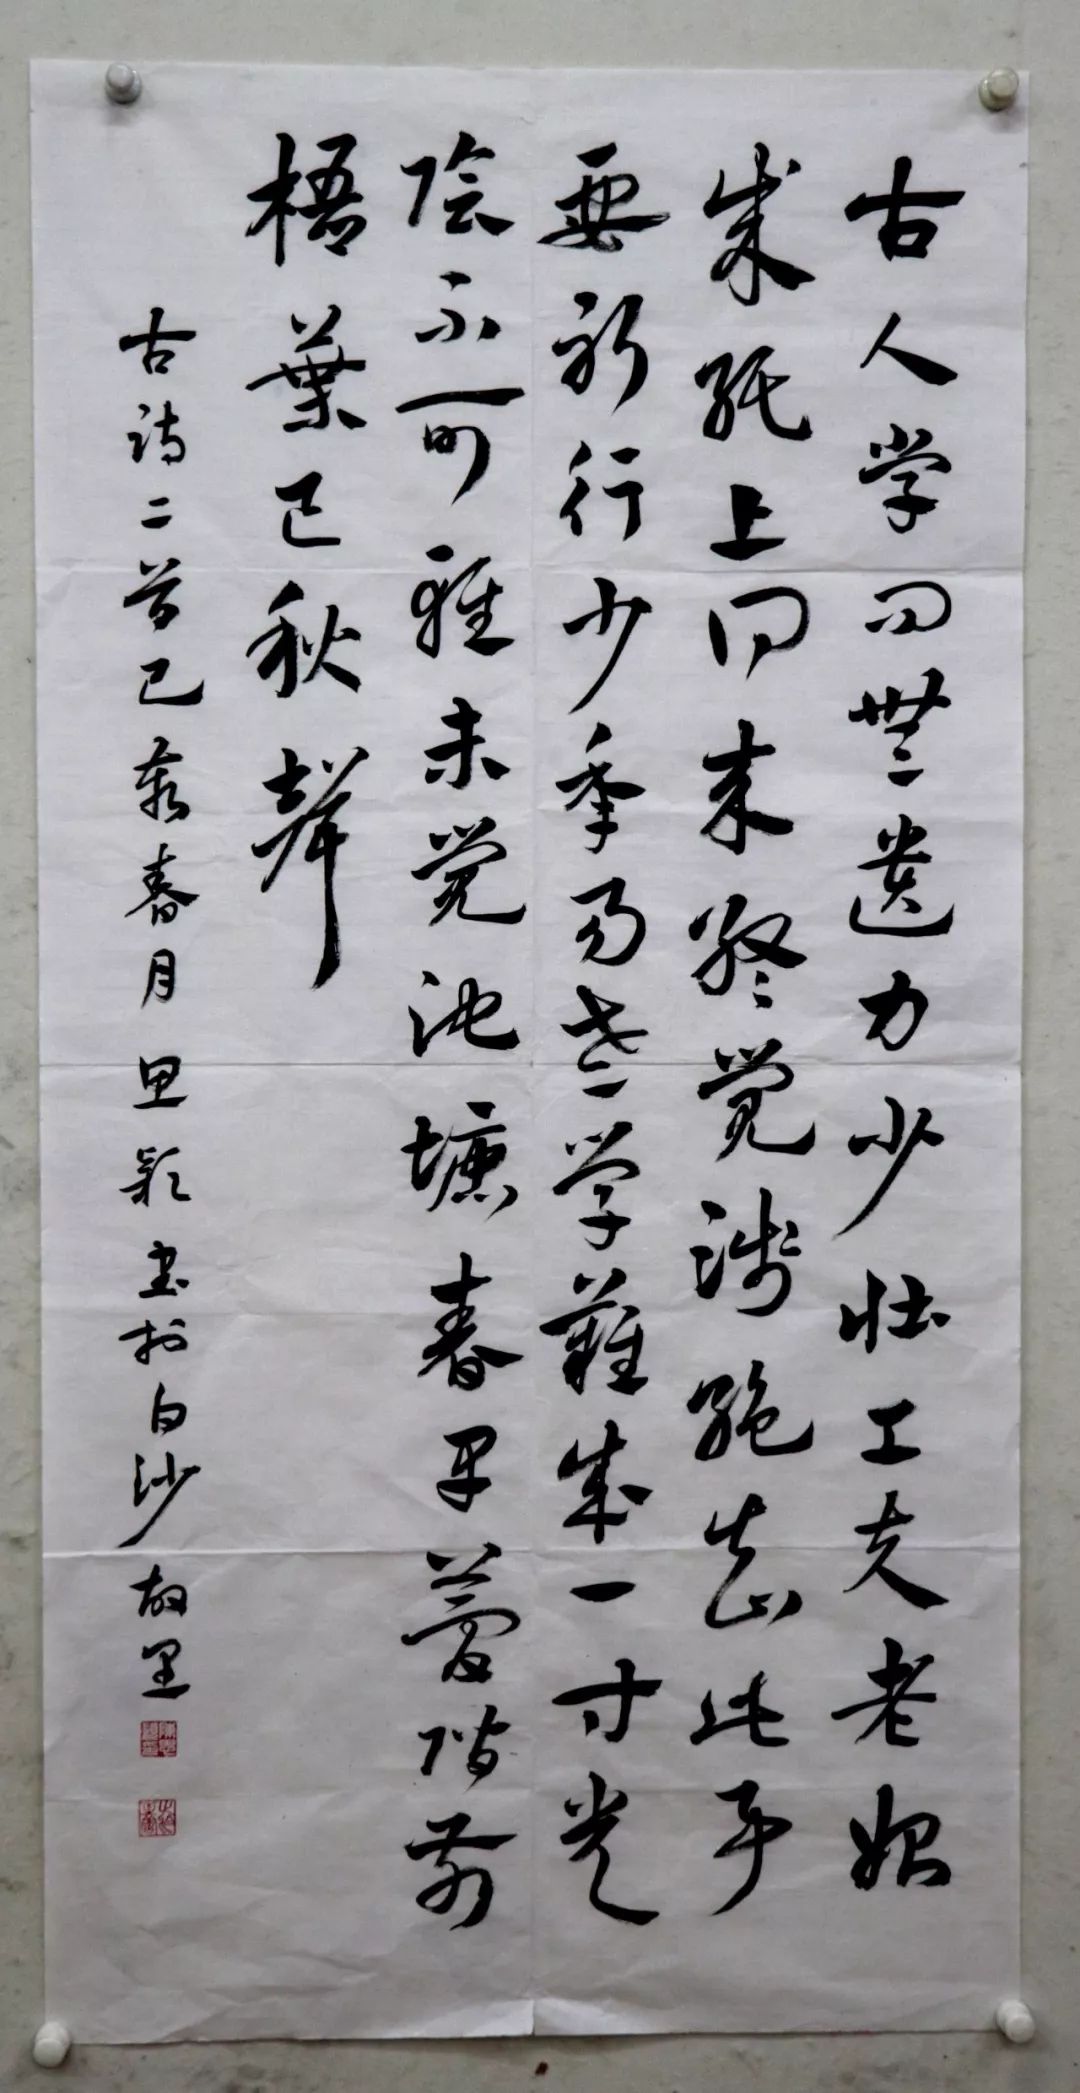 古人学问無遗力少壮工夫老始
成纸上得来终觉浅绝知此事
要躬行少秊易老学難成一寸光
陰不可轻未觉池塘春草夢階前
梧葉已秋聲
古诗二首己亥春月思颖书於白沙故里